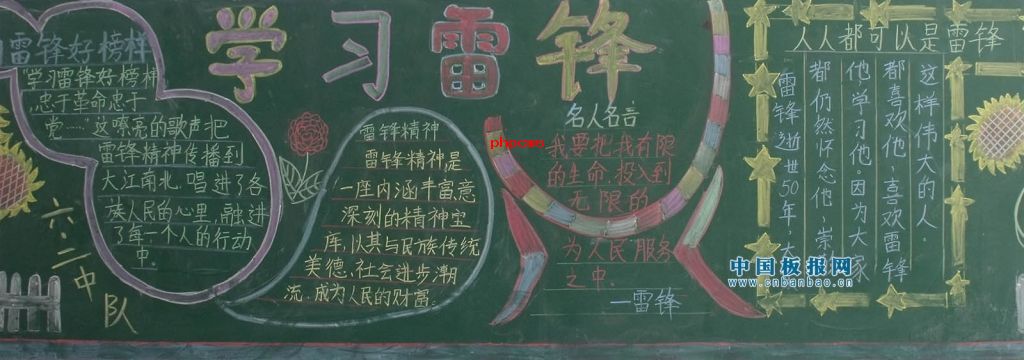 学习雷锋
雷锋好榜样
"学习雷锋好榜神
忠于革命忠于
党……"这嘹亮的歌声把
雷锋精神传播到
大江南北,唱进了各
族人民的心里,融进
了每一个人的行动
中.
六.二中队
雷锋精神
雷锋精神,是
一座内涵丰富,意
深刻的精神宝
库,以其与民族传统
美德、社会进步潮
流,成为人民的财富.
名人名言
我要把我有限
的生命,投入到
无限的
为人民服务
之中.
—雷锋
phpcom
人人都可以是雷锋
这样伟大的人.
都喜欢他,喜欢雷锋
他学习他.因为大家
都仍然怀念他、崇
雷锋逝世50年,大
中国板报网
www.cnbanbao.cn